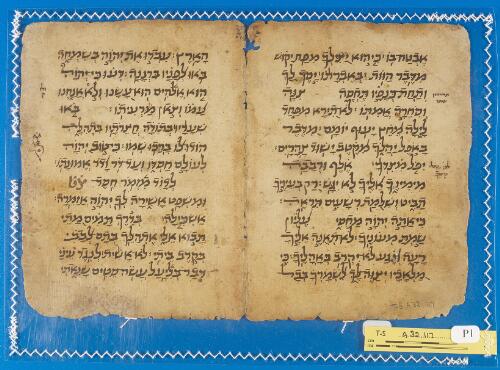 אבטח בו כי הוא יצילך מפח יקוש
מדבר הוות באברתו יסך לך
ותחת כנפיו תחסה צנה
וסחרה אמתו לא תירא מפחד
לילה מחץ יעוף יומם מדבר
באפל יהלך מקטב ישוד צהרים
יפל מצדך אלף ורבבה
מימינך אליך לא יגש רק בעיניך
תביט ושלמת רשעים תראה
כי אתה יהוה מחסי עליון
שמת מעונך לא תאנה אליך
רעה ונגע לא יקרב באהלך כי
מלאכיו יצוה לך לשמרך בכל
הארץ עבדו את יהוה בשמחה
באו לפניו ברננה דעו כי יהוה
הוא אלהים הוא עשנו ולא אנחנו
עמו וצאן מרעיתו באו
שעריו בתודה חצרתיו בתהלה
הודו לו ברכו שמו כי טוב יהוה
לעולם חסדו ועד דר ודר אמונתו
לדוד מזמור חסד
ומשפט אשירה לך יהוה אזמרה
אשכילה בדרך תמים מתי
תבוא אלי אתהלך בתם לבבי
בקרב ביתי לא אשית לנגד עיני
דבר בליעל עשה סטים שנאתי
T-S A 32.117
T-S A 32.117 P1